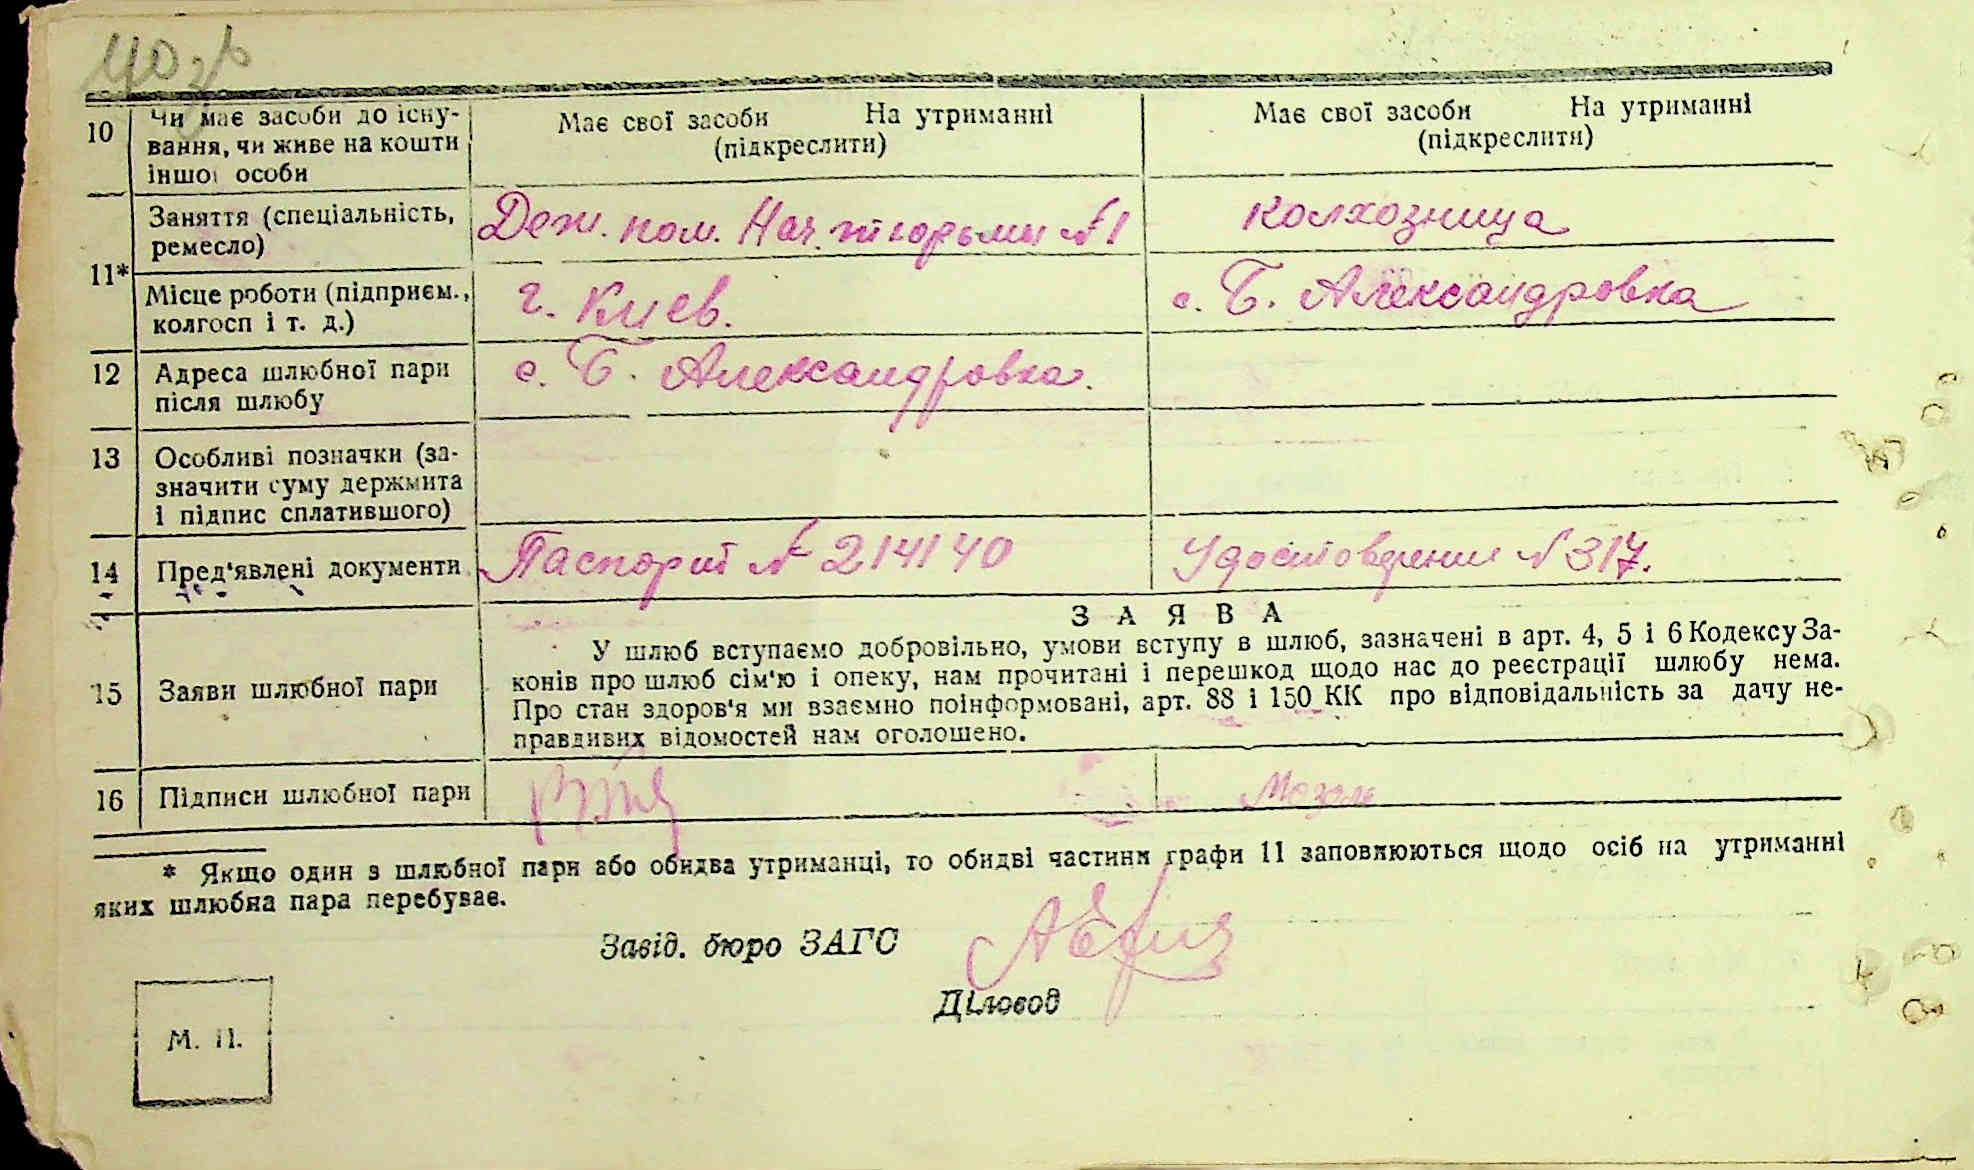 40 зв
10 Чи має засоби до існу-
вання, чи живе на кошти
іншої особи
Має свої засоби На утриманні
(підкреслити)
Має свої засоби На утриманні
(підкреслити)
11* Заняття (спеціальність,
ремесло)
Деж. пом. Нач. тюрьмы №1
колхозница
Місце роботи (підприєм.,
колгосп і т. д.)
г. Киев.
с. Б. Александровка
12 Адреса шлюбної пари
після шлюбу
с. Б. Александровка.
13 Особливі позначки (за-
значити суму держмита
і підпис сплатившого)
14 Пред'явлені документи
Паспорт № 214140
Удостоверение № 317.
15 Заяви шлюбної пари
ЗАЯВА
У шлюб вступаємо добровільно, умови вступу в шлюб, зазначені в арт. 4, 5 і 6 Кодексу За-
конів про шлюб сім'ю і опеку, нам прочитані і перешкод щодо нас до реєстрації шлюбу нема.
Про стан здоров'я ми взаємно поінформовані, арт. 88 і 150 КК про відповідальність за дачу не-
правдивих відомостей нам оголошено.
16 Підписи шлюбної пари
* Якщо один з шлюбної пари або обидва утриманці, то обидві частини графи 11 заповнюються щодо осіб на утриманні
яких шлюбна пара перебуває.
Завід. бюро ЗАГС
Діловод
М. П.